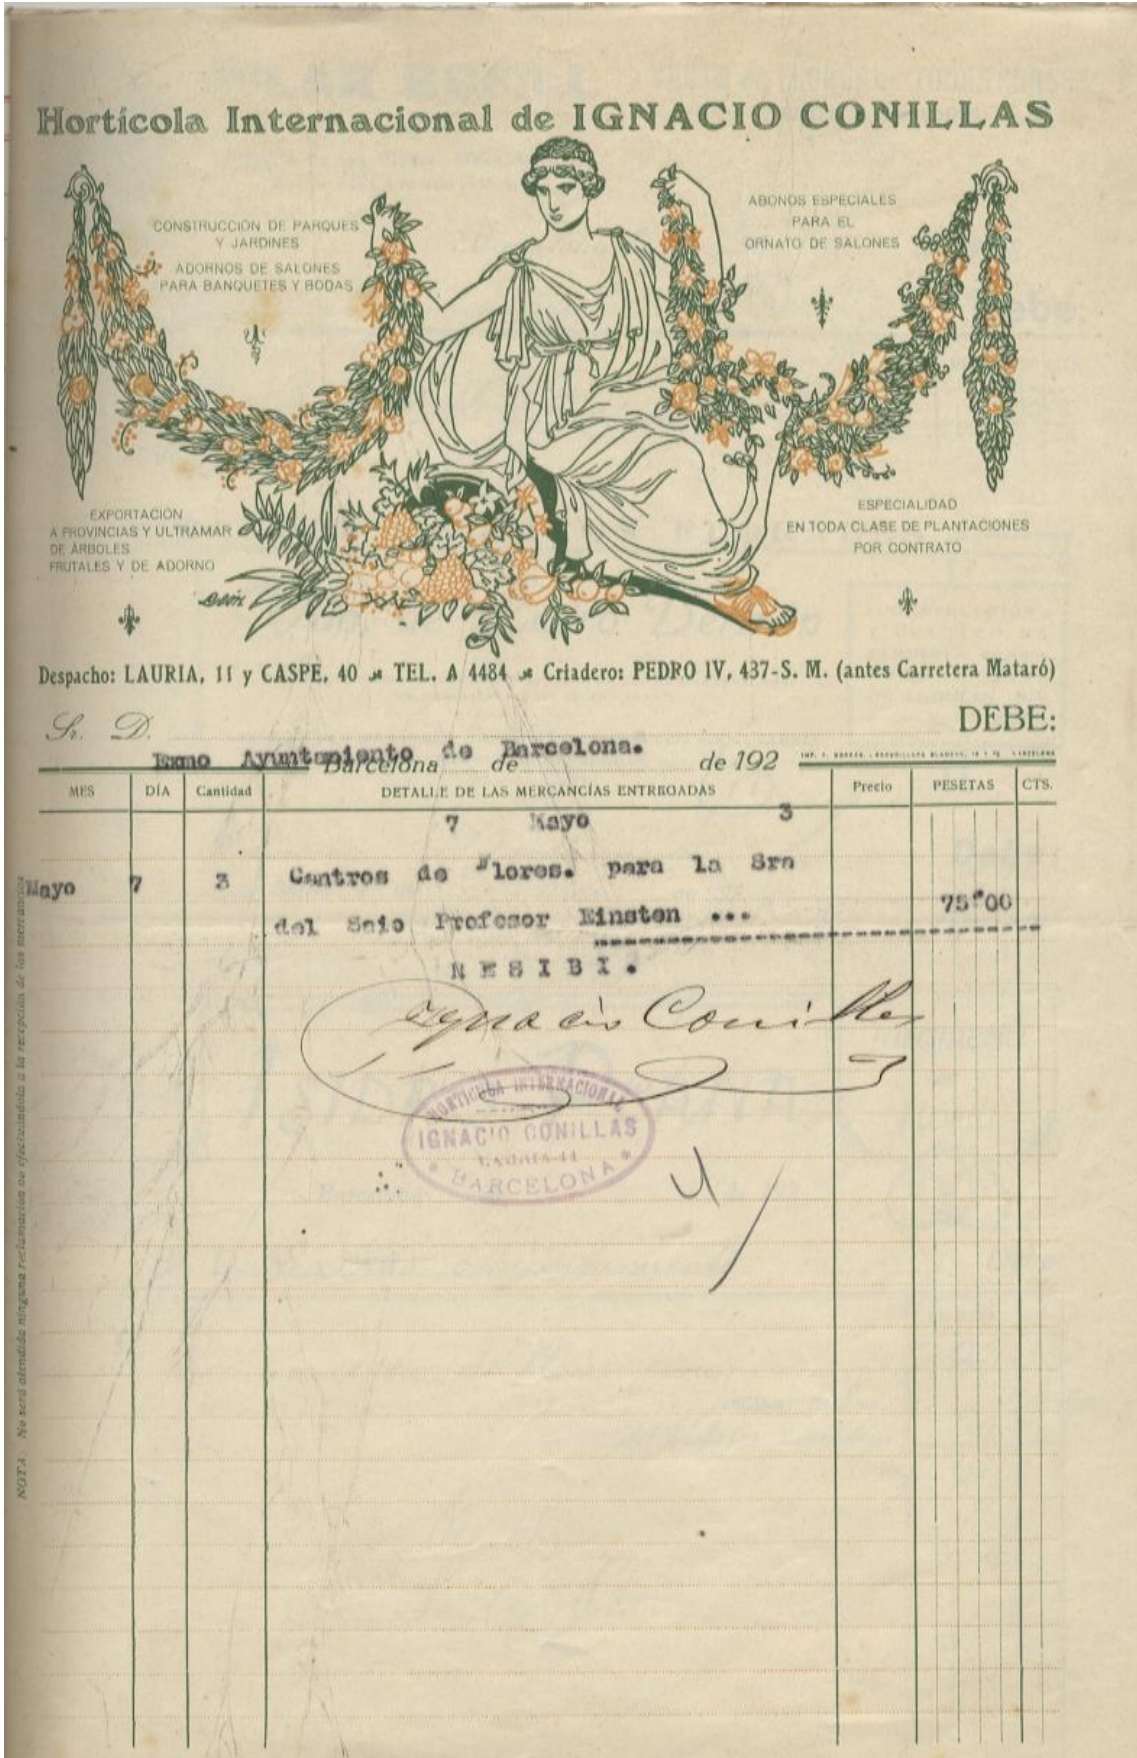 Hortícola Internacional de IGNACIO CONILLAS
CONSTRUCCIÓN DE PARQUES
Y JARDINES
ADORNOS DE SALONES
PARA BANQUETES Y BODAS
ABONOS ESPECIALES
PARA EL
ORNATO DE SALONES
EXPORTACIÓN
A PROVINCIAS Y ULTRAMAR
DE ÁRBOLES
FRUTALES Y DE ADORNO
ESPECIALIDAD
EN TODA CLASE DE PLANTACIONES
POR CONTRATO
Despacho: LAURIA, 11 y CASPE, 40 TEL. A 4484 Criadero: PEDRO IV, 437-S. M. (antes Carretera Mataró)
Sr. D.
DEBE:
Exmo Ayuntamiento de Barcelona.
Barcelona de de 192
MES DÍA Cantidad DETALLE DE LAS MERCANCÍAS ENTREGADAS Precio PESETAS CTS.
7 Mayo 3
Mayo 7 3 Centros de Flores. para la Sra
del Saio Profesor Einsten ... 75'00
RESIBI.
Ignacio Conillas
HORTICOLA INTERNACIONAL
IGNACIO CONILLAS
LAURIA-11
BARCELONA
NOTA: No será atendida ninguna reclamación no efectuándola a la recepción de las mercancías